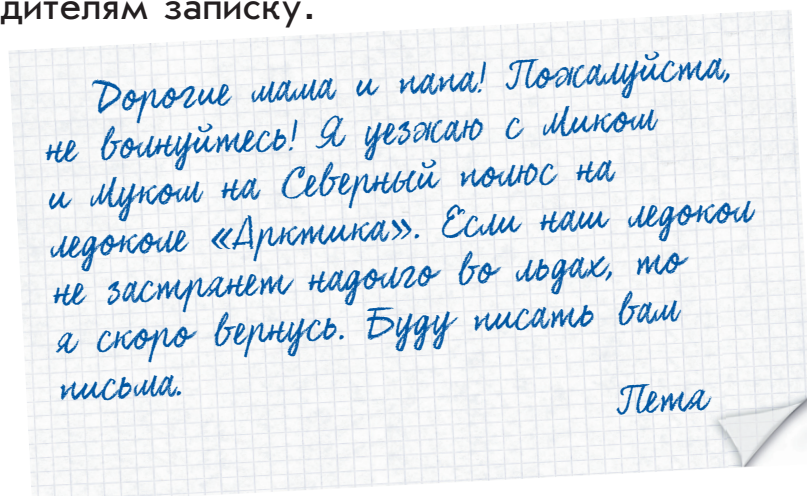 дителям записку.
Дорогие мама и папа! Пожалуйста,
не волнуйтесь! Я уезжаю с Миком
и Муком на Северный полюс на
ледоколе «Арктика». Если наш ледокол
не застрянет надолго во льдах, то
я скоро вернусь. Буду писать вам
письма.
Петя